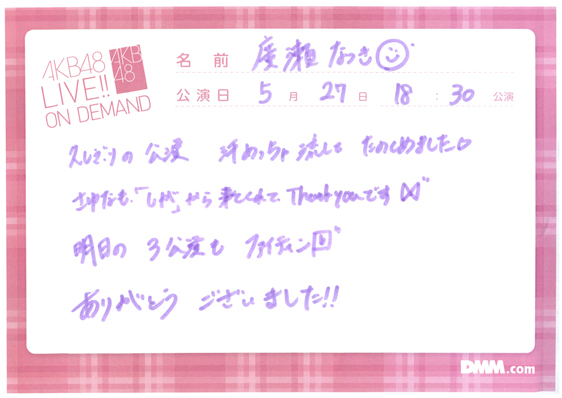 AKB48
LIVE!!
ON DEMAND
AKB
48
名前 廣瀬なつき
公演日 5月27日 18:30公演
久しぶりの 公演 汗めっちゃ流して たのしめました♡
から 来てくれて Thank youです
明日の 3公演も ファイティン
ありがとう ございました!!
DMM.com